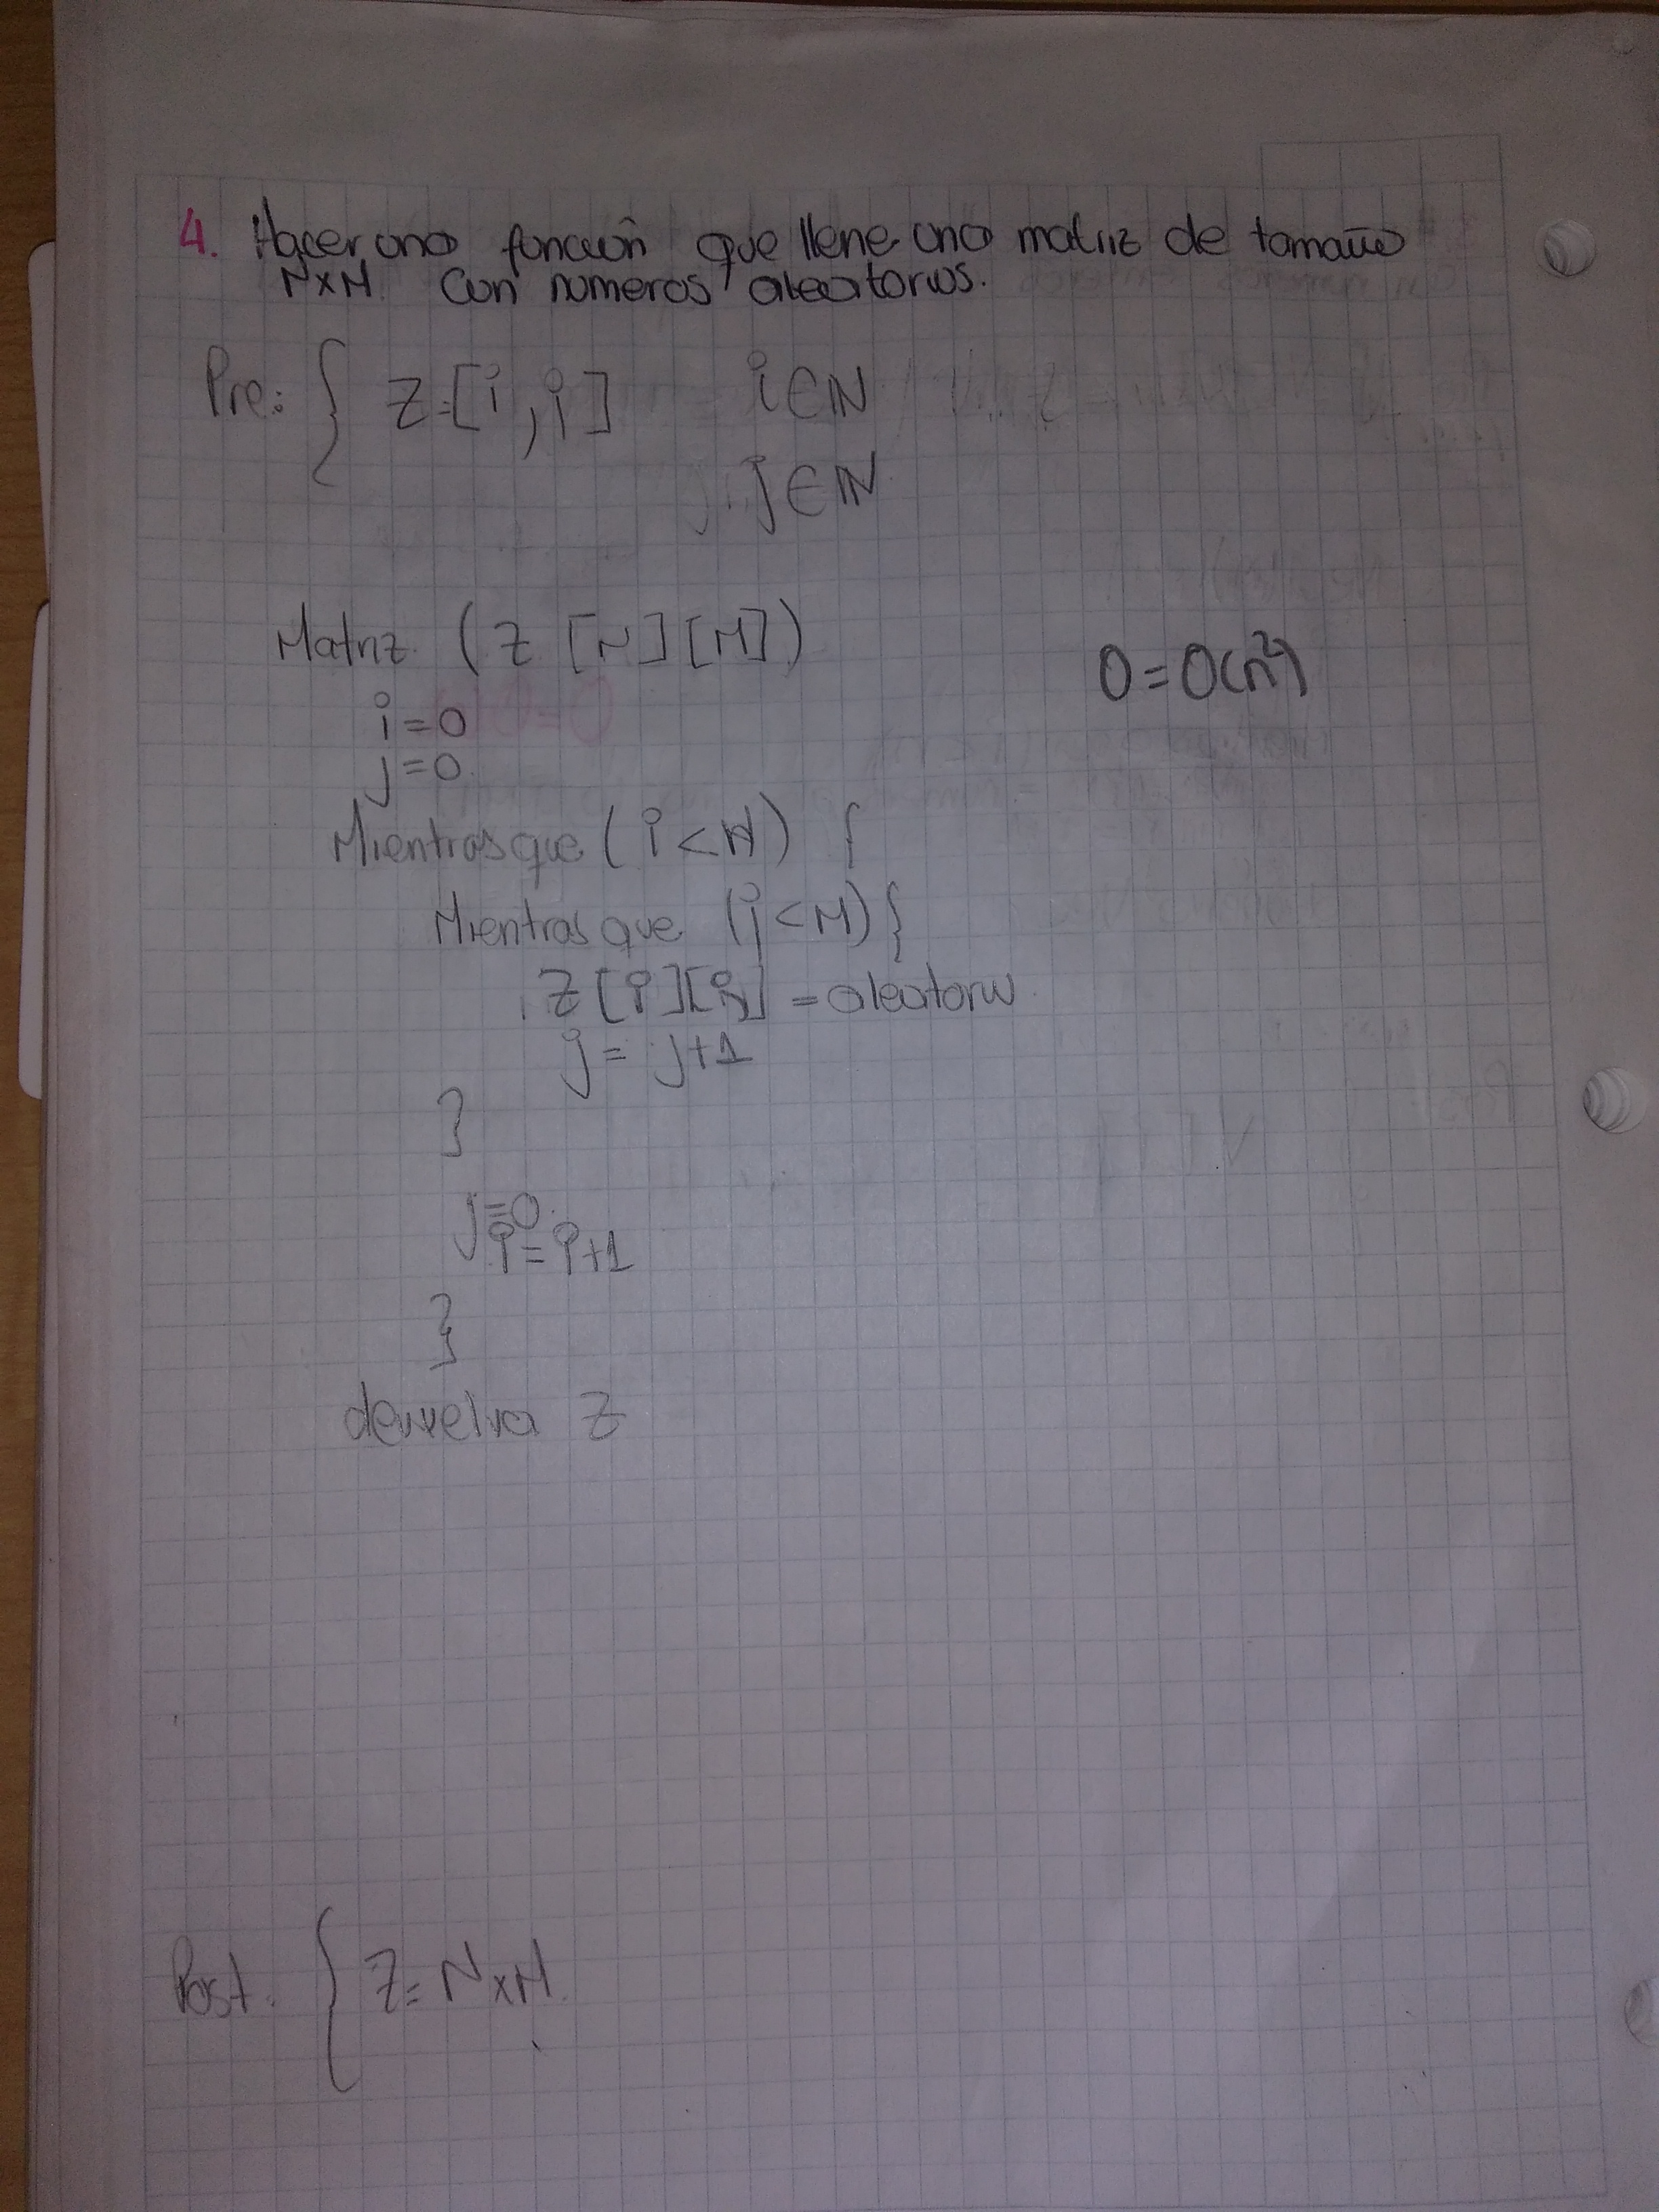 4. Hacer una función que llene una matriz de tamaño
N×M con numeros aleatorios.
Pre: { Z=[i,j] i∈ℕ
j∈ℕ
Matriz (Z [N][M])
O=O(n²)
i=0
j=0
Mientras que (i<N) {
Mientras que (j<M){
Z[i][j] = aleatorio
j= j+1
}
j=0
i=i+1
}
devuelva Z
Post. { Z= N×M